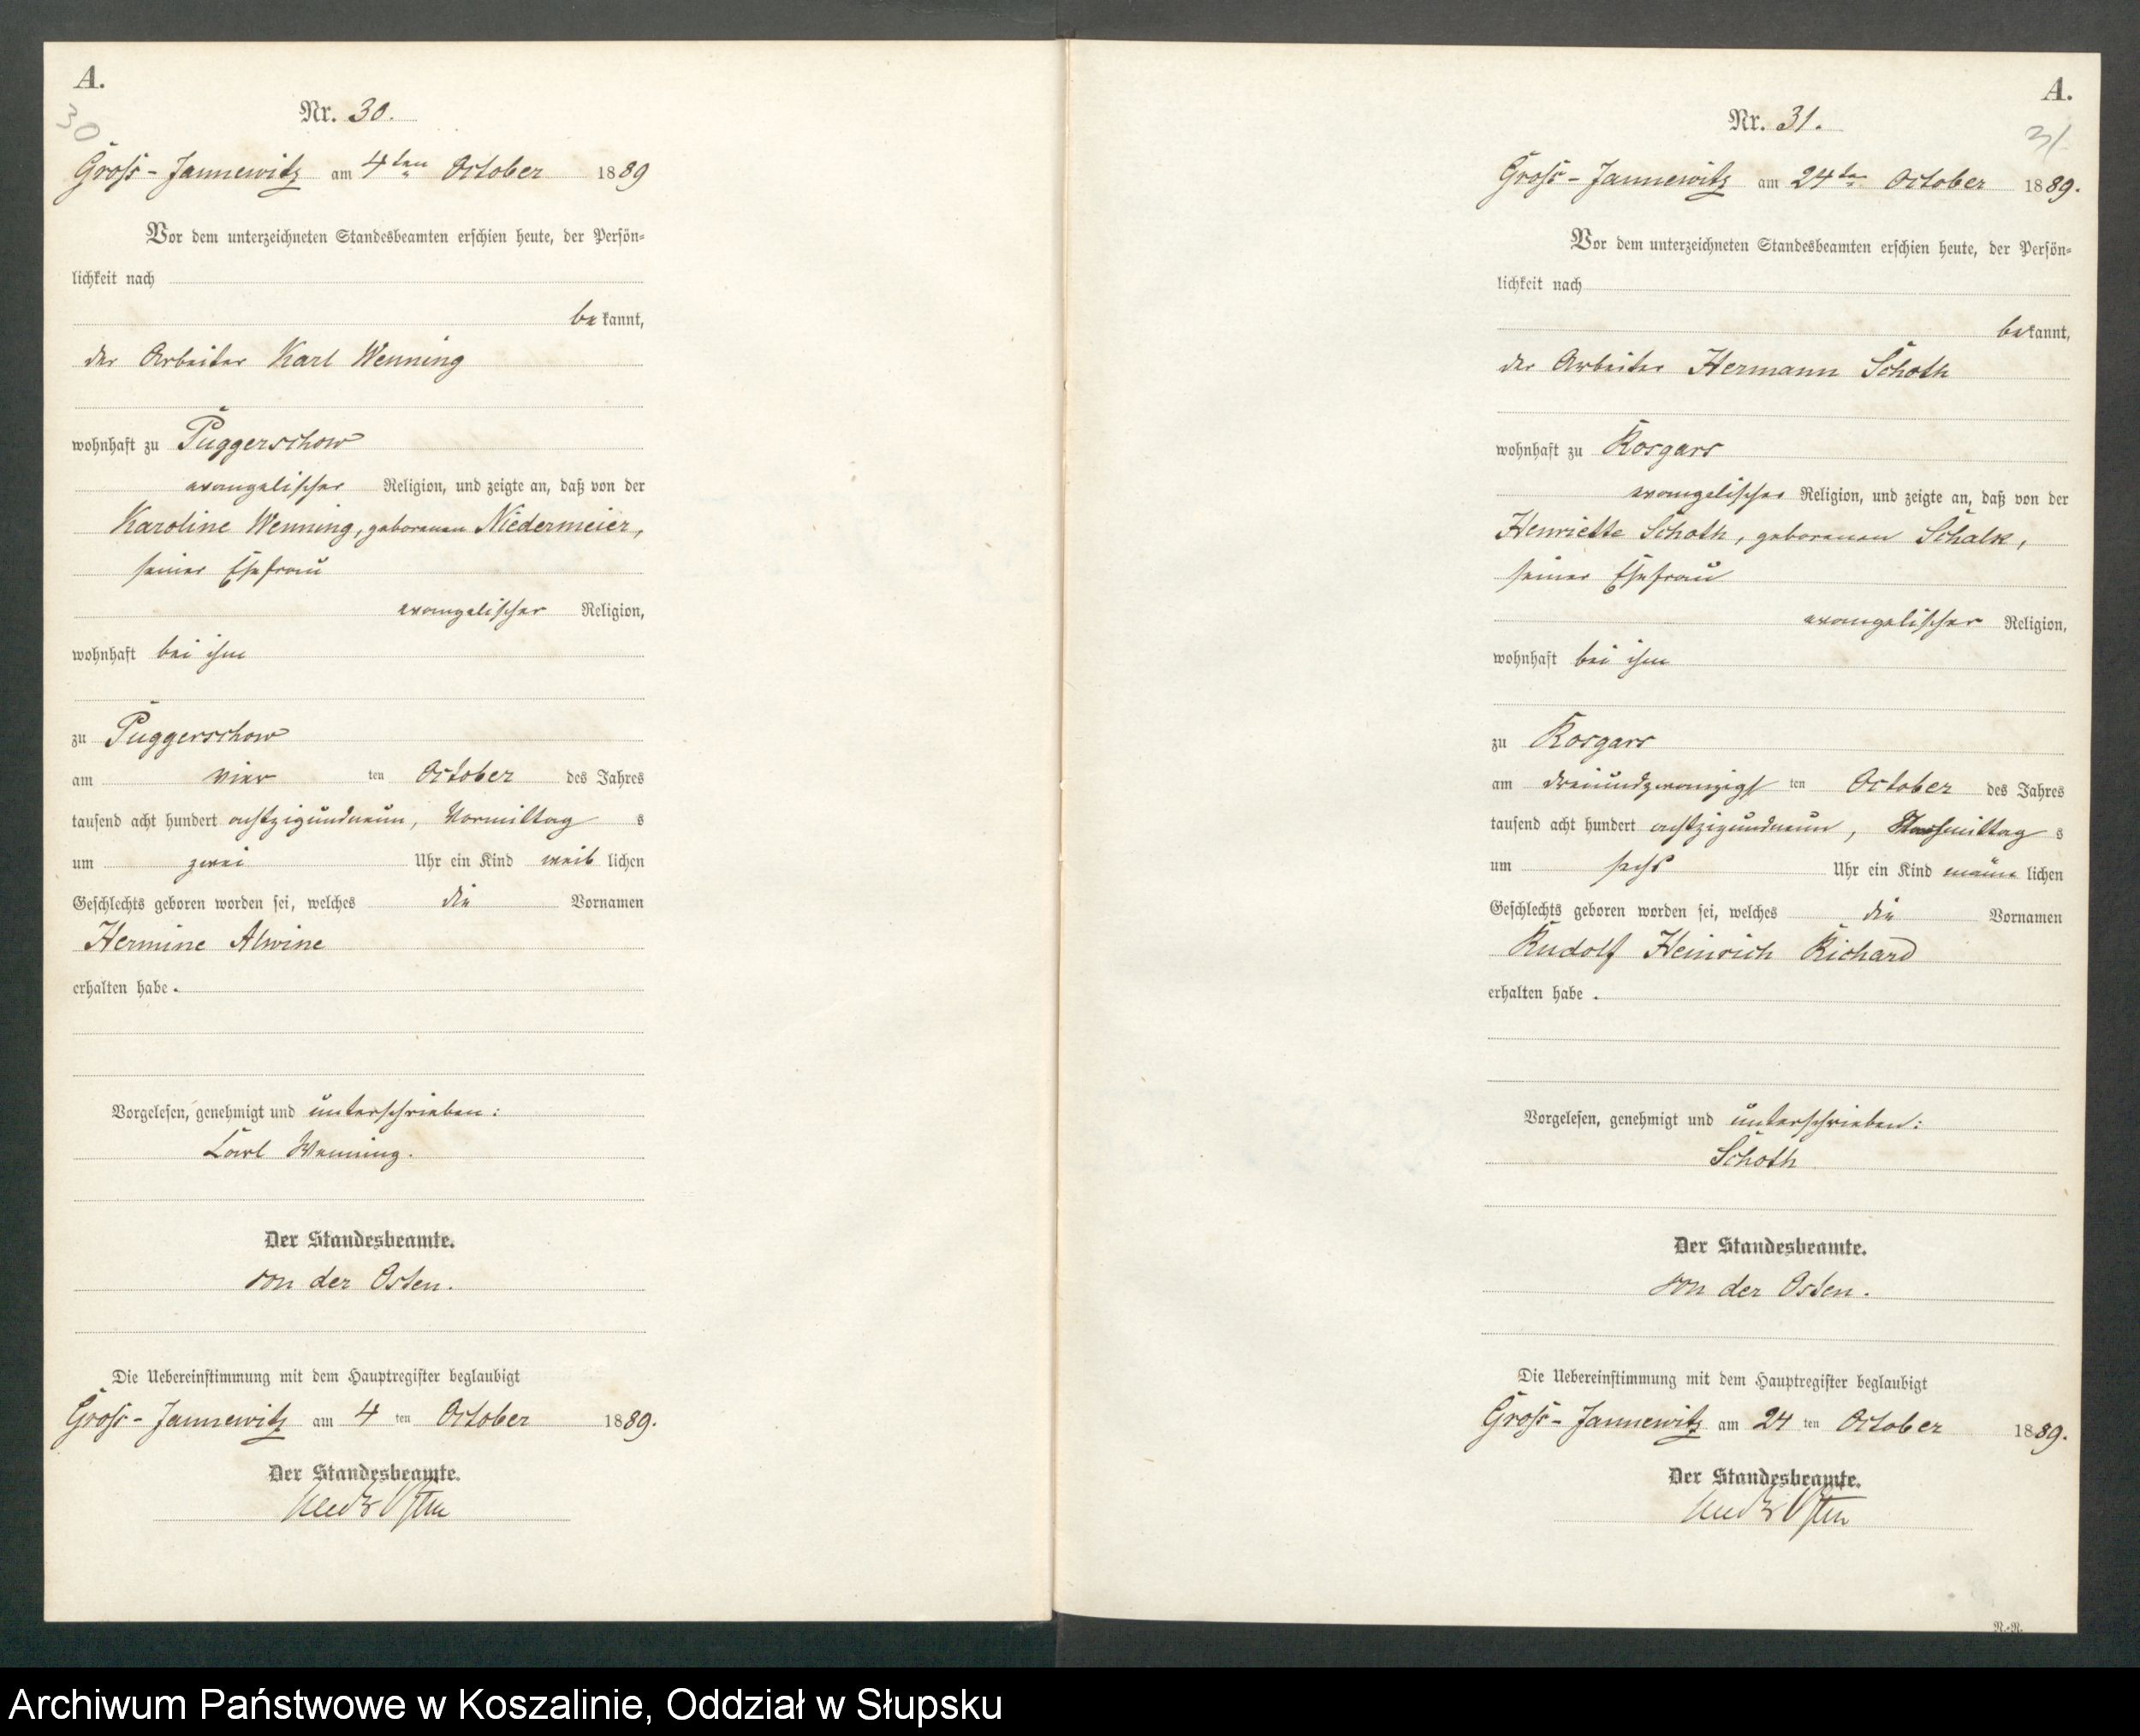 A.
30
Nr. 30.
Gross-Jannewitz am 4ten October 1889
Vor dem unterzeichneten Standesbeamten erschien heute, der Persön-
lichkeit nach
bekannt,
der Arbeiter Karl Wenning
wohnhaft zu Puggerschow
evangelischer Religion, und zeigte an, daß von der
Karoline Wenning, geborenen Niedermeier,
seiner Ehefrau
evangelischer Religion,
wohnhaft bei ihm
zu Puggerschow
am vier ten October des Jahres
tausend acht hundert achtzigundneun, Vormittag s
um zwei Uhr ein Kind weib lichen
Geschlechts geboren worden sei, welches die Vornamen
Hermine Alwine
erhalten habe.
Vorgelesen, genehmigt und unterschrieben:
Carl Wenning.
Der Standesbeamte.
von der Osten.
Die Uebereinstimmung mit dem Hauptregister beglaubigt
Gross-Jannewitz am 4 ten October 1889.
Der Standesbeamte.
A.
31
Nr. 31.
Gross-Jannewitz am 24ten October 1889.
Vor dem unterzeichneten Standesbeamten erschien heute, der Persön-
lichkeit nach
bekannt,
der Arbeiter Hermann Schoth
wohnhaft zu Rosgars
evangelischer Religion, und zeigte an, daß von der
Henriette Schoth, geborenen Schalk,
seiner Ehefrau
evangelischer Religion,
wohnhaft bei ihm
zu Rosgars
am dreiundzwanzigst ten October des Jahres
tausend acht hundert achtzigundneun, Nachmittag s
um sechs Uhr ein Kind männ lichen
Geschlechts geboren worden sei, welches die Vornamen
Rudolf Heinrich Richard
erhalten habe.
Vorgelesen, genehmigt und unterschrieben:
Schoth
Der Standesbeamte.
von der Osten.
Die Uebereinstimmung mit dem Hauptregister beglaubigt
Gross-Jannewitz am 24 ten October 1889.
Der Standesbeamte.
Archiwum Państwowe w Koszalinie, Oddział w Słupsku